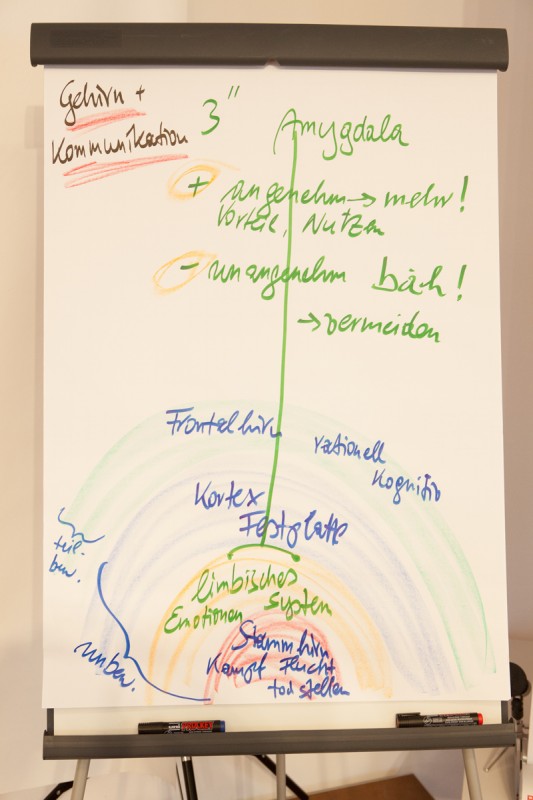 Gehirn +
Kommunikation
3"
Amygdala
+ angenehm → mehr!
Vorteil, Nutzen
- unangenehm bäh!
→ vermeiden
Frontalhirn
rationell
kognitiv
Kortex
Festplatte
teil-
bew.
limbisches
Emotionen System
Stammhirn
Kampf Flucht
tod stellen
unbew.